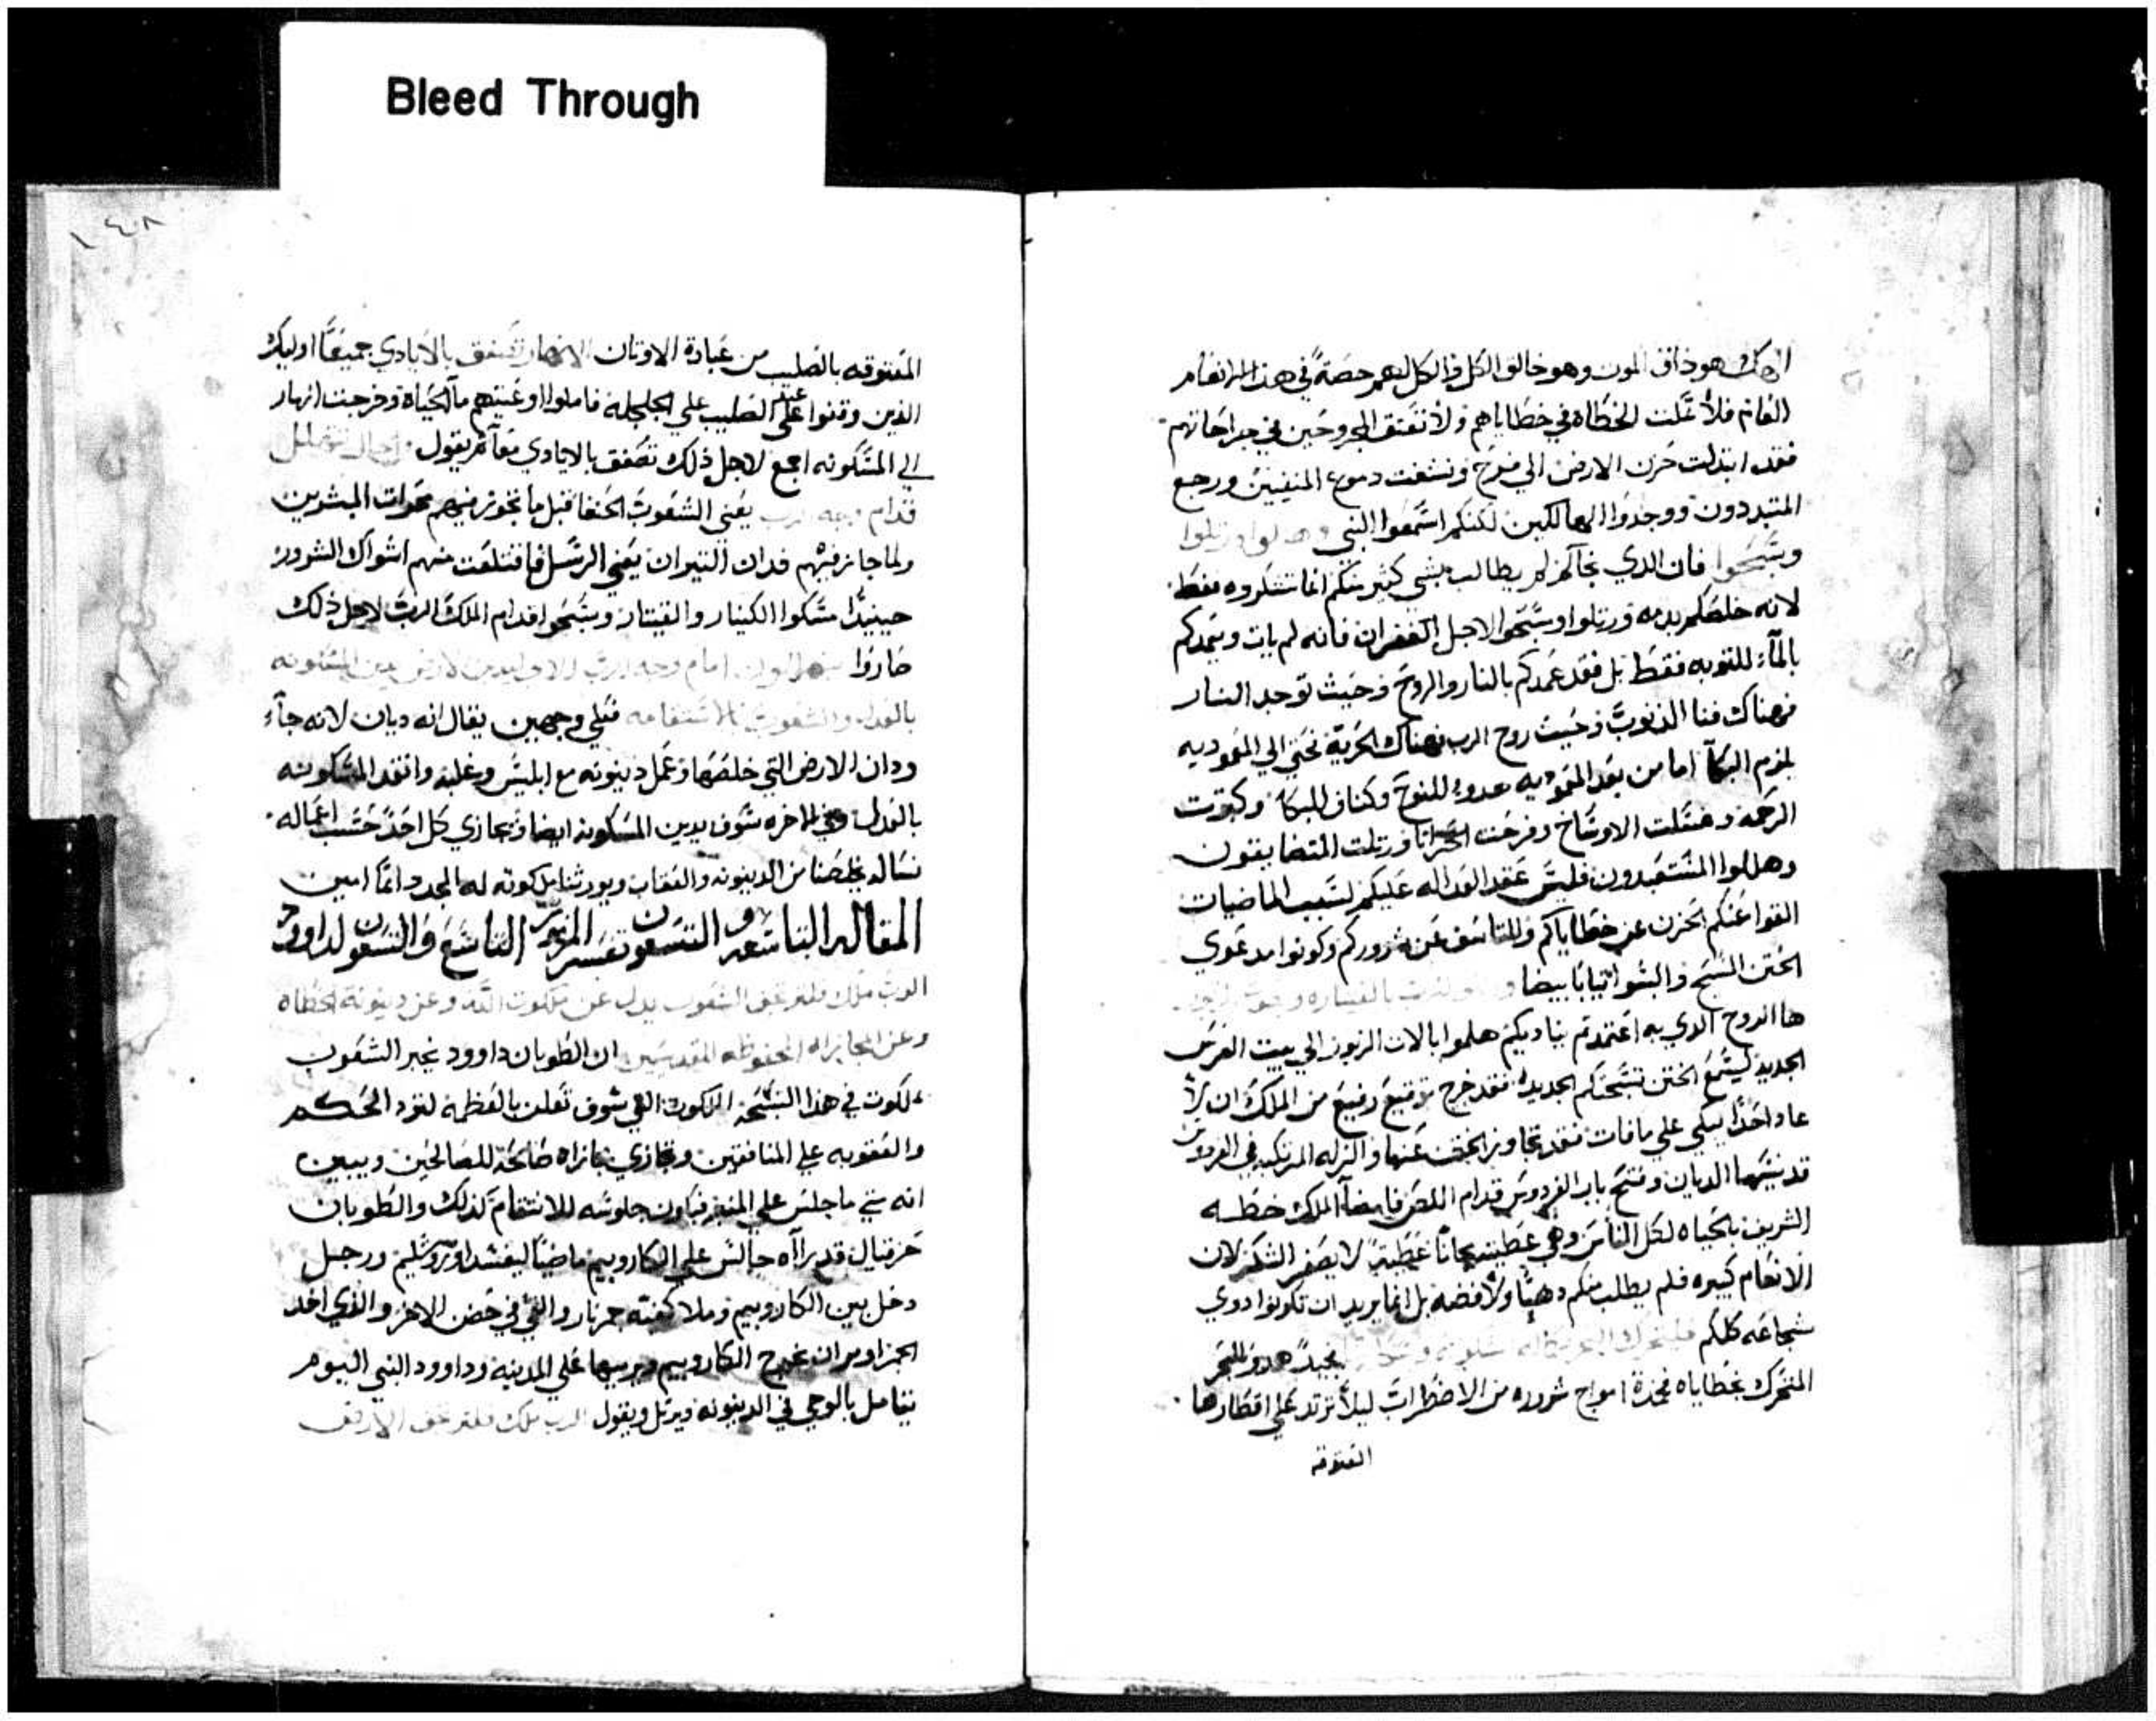 Bleed Through
هو ذاق الموت وهو خالق الكل والكل لهم حصة في هذا الانعام
فلا خطاياهم ولا المجروحين في جراحاتهم
فقد ابتدلت حزن الارض الي فرح ونشفت دموع المنفيين ورجع
المتبددون ووجدوا الهالكين لكنكم اسمعوا النبي وهللوا ورتلوا
وسبحوا فان الذي لم يطالب بشي كثير منكم انما تشكروه فقط
لانه خلصكم بدمه ورتلوا وسبحوا لاجل الغفران فانه لم يات ويعمدكم
بالماء للتوبه فقط بل فقد عمدكم بالنار والروح وحيث توجد النار
فهناك فنا الذنوب وحيث روح الرب فهناك الحرية نحني الي المعموديه
يلزم البكا اما من بعد المعموديه هدو للنوح وكفاف للبكا
الرحمه وغسلت الاوساخ وفرحت ورتلت المتضايقون
وهللوا المستعبدون فليس عليكم لسبب الماضيات
القوا عنكم الحزن عن خطاياكم والتاسف عن شروركم وكونوا مدعوي
الختن المسيح والبسوا ثيابا بيضا
ها الروح الذي به اعتمدتم يناديكم هلموا بالات الزبور الي بيت العرس
الجديد ليسمع الختن تسبحتكم الجديده فقد خرج توقيع رفيع من الملك ان لا
عاد احدا يبكي علي مافات فقد تجاوز الختن عنها والزله المرتكبه في الفردوس
قد نسيها الديان وفتح باب الفردوس قدام اللص الملك خطه
الشريف بالحياه لكل الناس وهي عطيه مجانا عطية لا يصغر الشكر لان
الانعام كبيره فلم يطلب منكم دهبا ولا فضه بل انما يريد ان تكونوا دوي
شجاعه كلكم
المتحرك بخطاياه امواج شروره من الاضطراب ليلا ترتد علي اقطارها
المعتوقه
١٤٨
المعتوقه بالصليب من عبادة الاوثان الانهار تصفق بالايادي جميعا اوليك
الذين وقفوا عند الصليب علي الجلجله فاملوا اوعيتهم ماء الحياة وخرجت انهار
الي المسكونه اجمع لاجل ذلك تصفق بالايادي معا ثم يقول الجبال تتهلل
قدام وجه الرب يعني الشعوب الحنفا قبل ما تجوز فيهم محرات المبشرين
ولما جاز فيهم فدان النيران يعني الرسل فاقتلعت منهم اشواك الشرور
حينيذ امسكوا الكينار والقيتار وسبحوا قدام الملك الرب لاجل ذلك
صاروا يتهللون امام وجه الرب لانه ليدين الارض يدين المسكونه
بالعدل والشعوب بالاستقامه فعلي وجهين يقال انه ديان لانه جاء
ودان الارض التي خلصها وعمل دينونه مع ابليس وغلبه وانقد المسكونه
بالعدل وفي الاخره سوف يدين المسكونه ايضا ويجازي كل احد حسب اعماله
نساله يخلصنا من الدينونه والعقاب ويورثنا ملكوته له المجد دائما امين
المقاله التاسعه والتسعون تفسير المزمور التاسع والتسعون لداود
الرب ملك فلترتجف الشعوب يدل عن ملكوت الله وعن دينونة الخطاه
وعن المجازاه المحفوظه للقديسين ان الطوبان داوود يخبر الشعوب
ملكوت في هذا التسبحه الملكوت التي سوف تعلن بالعظمه لتود الحكم
والعقوبه علي المنافقين وتجازي مجازاه صالحه للصالحين ويبين
انه متي ما جلس علي المنبر فيكون جلوسه للانتقام كذلك والطوبان
حزقيال قد راه جالس علي الكاروبيم ماضيا ليفسد اورشليم ورجل
دخل بين الكاروبيم وملا كفته جمر نار والقي في حضن الاخر والذي اخد
الجمر اومر ان يخرج الكاروبيم ويرميها علي المدينه وداوود النبي اليوم
يتامل بالوحي في الدينونه ويرتل ويقول الرب ملك فلترتجف الارض